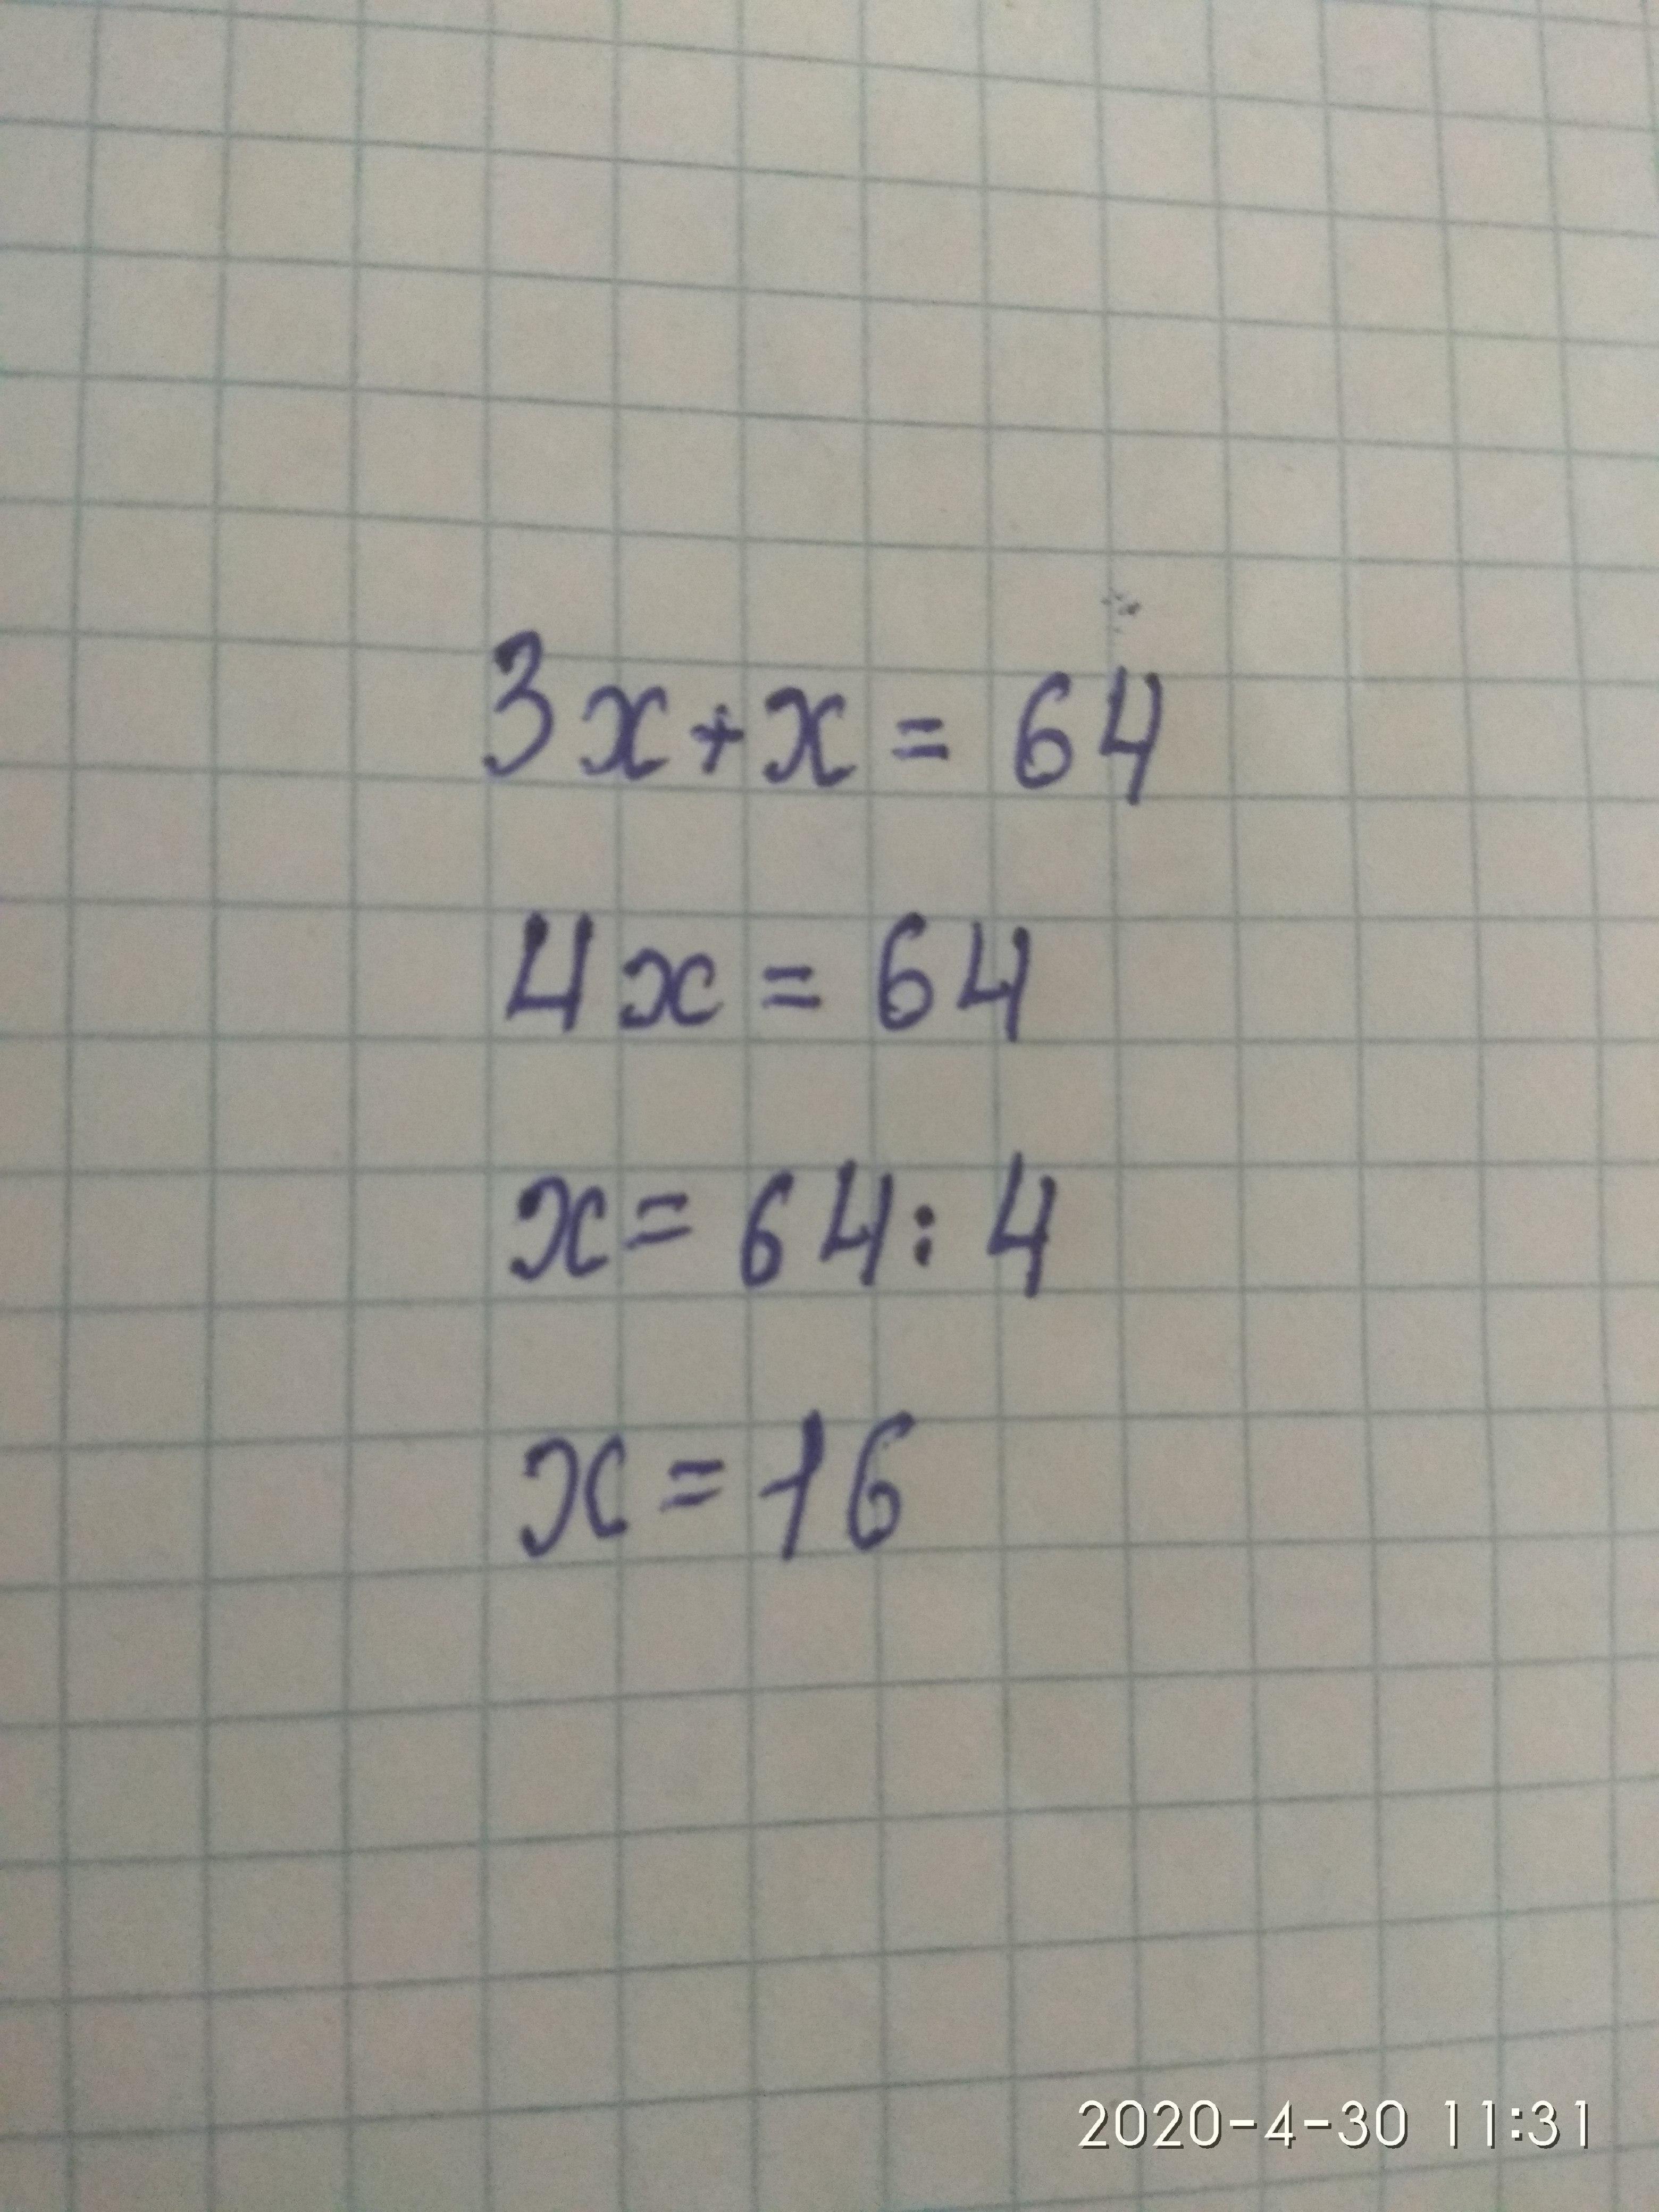 3x+x = 64
4x = 64
x = 64 : 4
x = 16
2020-4-30 11:31